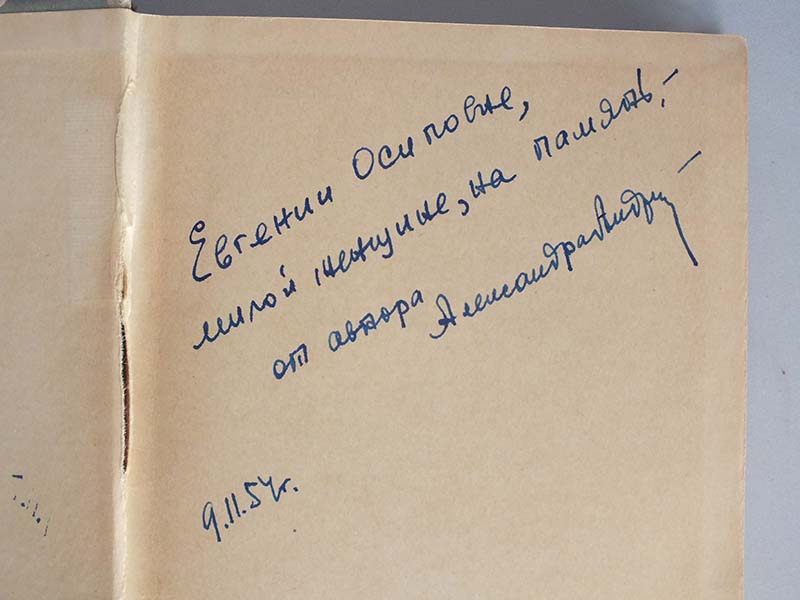 Евгении Осиповне,
милой женщине, на память, –
от автора Александра
9.11.54 г.